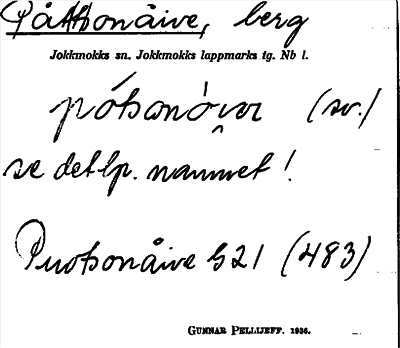 Påttsonåive, berg
Jokkmokks sn. Jokkmokks lappmarks tg. Nb l.
(sv.)
se det lp. namnet!
Puotsonåive 521 (483)
GUNNAR PELLIJEFF. 1936.